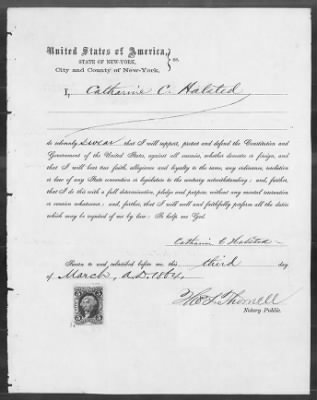 United States of America,
STATE OF NEW-YORK,
City and County of New-York,
} ss.
I, Catharine C. Halsted
do solemnly swear that I will support, protect and defend the Constitution and
Government of the United States, against all enemies, whether domestic or foreign, and
that I will bear true faith, allegiance and loyalty to the same, any ordinance, resolution
or law of any State convention or legislature to the contrary notwithstanding; and, further,
that I do this with a full determination, pledge and purpose, without any mental reservation
or evasion whatsoever; and, further, that I will well and faithfully perform all the duties
which may be required of me by law: So help me God.
Catharine C Halsted
Sworn to and subscribed before me, this third day
of March, A.D. 1864.
Thos. L. Thornell
Notary Public.